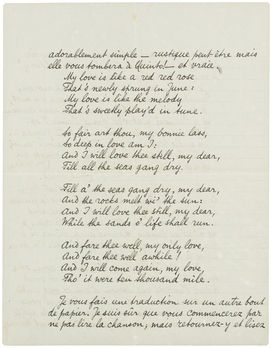 adorablement simple — rustique peut être mais
elle vous tombera à Quinto! — et vraie.
My love is like a red red rose
That's newly sprung in June:
My love is like the melody
That's sweetly play'd in tune.
So fair art thou, my bonnie lass,
So deep in love am I:
And I will love thee still, my dear,
Till all the seas gang dry.
Till a' the seas gang dry, my dear,
And the rocks melt wi' the sun:
And I will love thee still, my dear,
While the sands o' life shall run.
And fare thee well, my only love,
And fare thee well awhile!
And I will come again, my love,
Tho' it were ten thousand mile.
Je vous fais une traduction sur un autre bout
de papier. Je suis sûr que vous commencerez par
ne pas lire la chanson, mais retournez-y et lisez